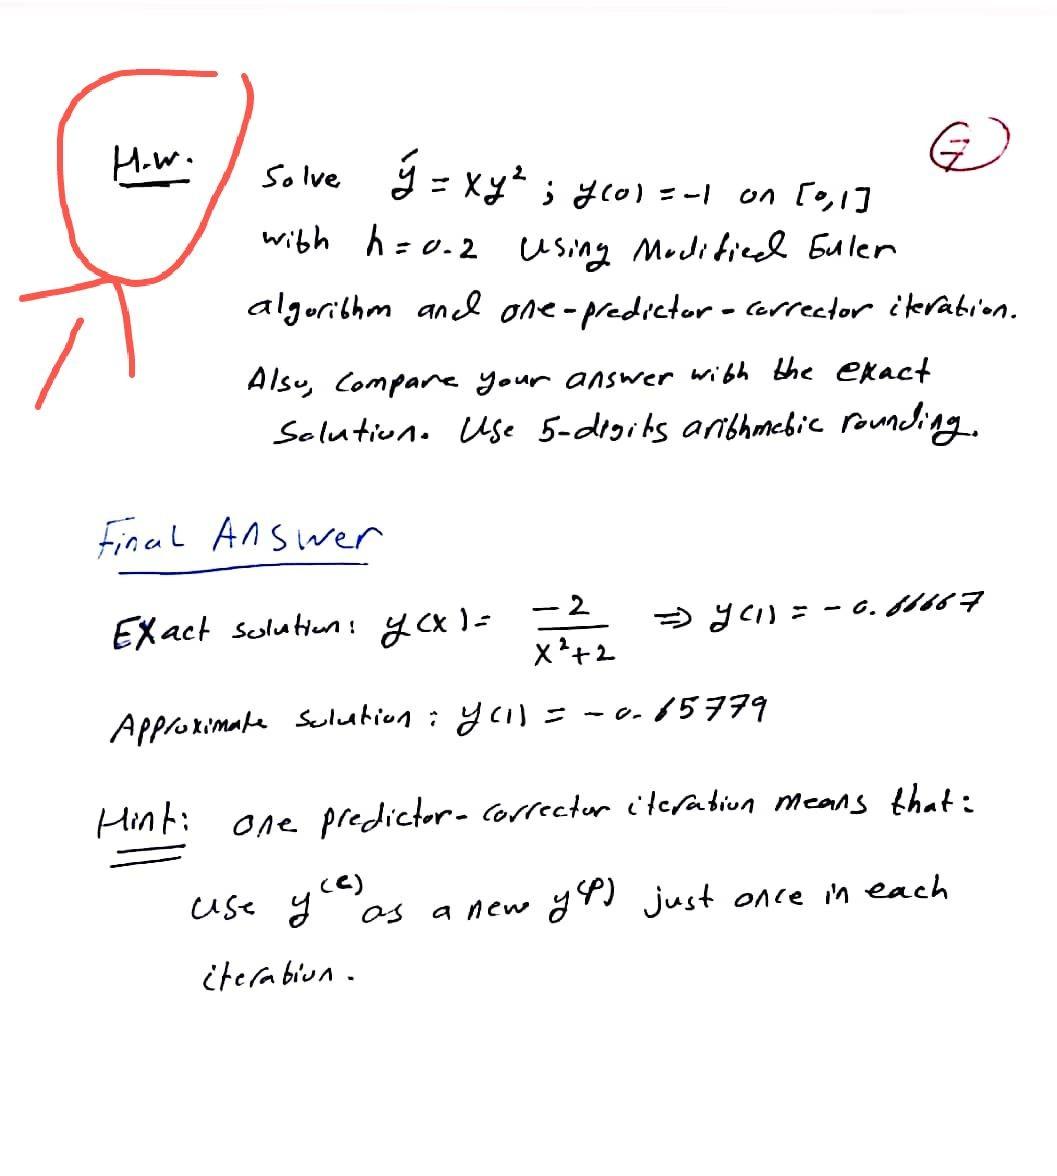 H.W.
⑦
Solve ý = xy² ; y(0) = -1 on [0,1]
with h = 0.2 Using Modified Euler
algorithm and one-predictor-corrector iteration.
Also, Compare your answer with the exact
Solution. Use 5-digits arithmetic rounding.
Final Answer
Exact solution: y(x) = -2/(x²+2) ⇒ y(1) = -0.66667
Approximate solution : y(1) = -0.65779
Hint: one predictor-corrector iteration means that:
use y^(c) as a new y^(p) just once in each
iteration.